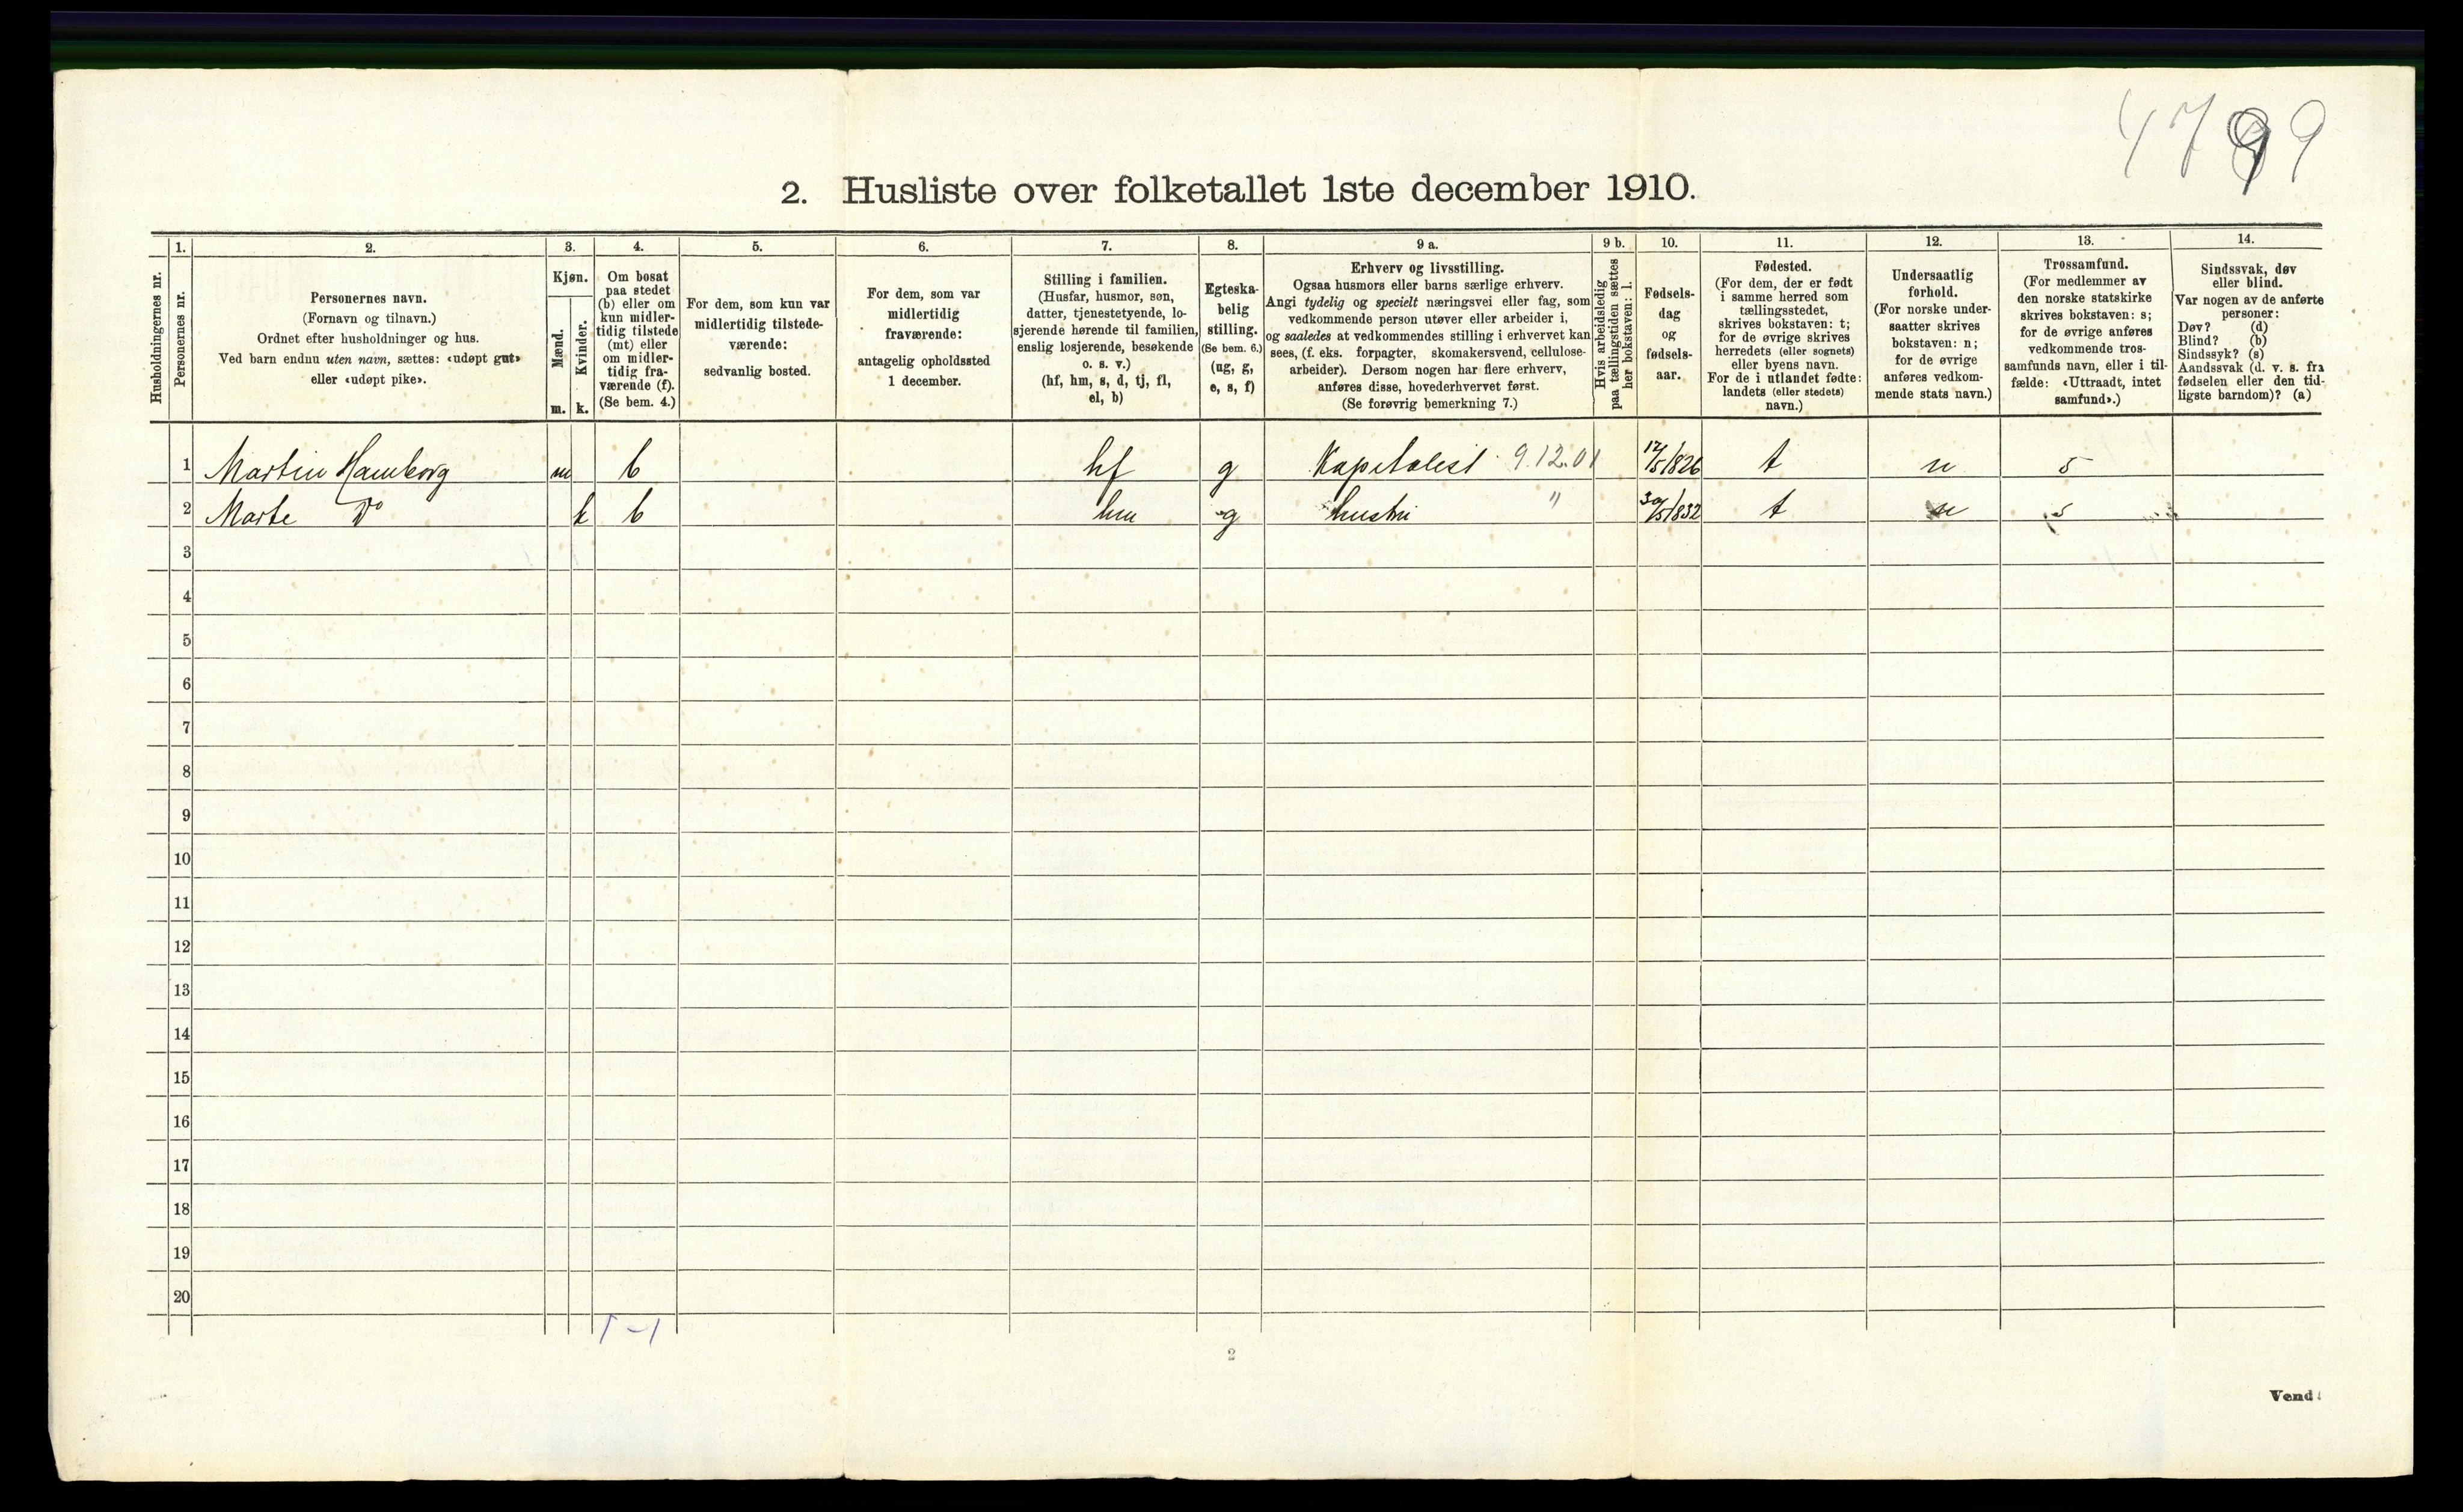 4799
2. Husliste over folketallet 1ste december 1910.
Husholdningernes nr.
1.
Personernes nr.
2.
Personernes navn.
(Fornavn og tilnavn.)
Ordnet efter husholdninger og hus.
Ved barn endnu uten navn, sættes: «udøpt gut»
eller «udøpt pike».
3.
Kjøn.
Mænd.
Kvinder.
m. k.
4.
Om bosat
paa stedet
(b) eller om
kun midler-
tidig tilstede
(mt) eller
om midler-
tidig fra-
værende (f).
(Se bem. 4.)
5.
For dem, som kun var
midlertidig tilstede-
værende:
sedvanlig bosted.
6.
For dem, som var
midlertidig
fraværende:
antagelig opholdssted
1 december.
7.
Stilling i familien.
(Husfar, husmor, søn,
datter, tjenestetyende, lo-
sjerende hørende til familien,
enslig losjerende, besøkende
o. s. v.)
(hf, hm, s, d, tj, fl,
el, b)
8.
Egteska-
belig
stilling.
(Se bem. 6.)
(ug, g,
e, s, f)
9 a.
Erhverv og livsstilling.
Ogsaa husmors eller barns særlige erhverv.
Angi tydelig og specielt næringsvei eller fag, som
vedkommende person utøver eller arbeider i,
og saaledes at vedkommendes stilling i erhvervet kan
sees, (f. eks. forpagter, skomakersvend, cellulose-
arbeider). Dersom nogen har flere erhverv,
anføres disse, hovederhvervet først.
(Se forøvrig bemerkning 7.)
9 b.
Hvis arbeidsledig
paa tællingstiden sættes
her bokstaven: l.
10.
Fødsels-
dag
og
fødsels-
aar.
11.
Fødested.
(For dem, der er født
i samme herred som
tællingsstedet,
skrives bokstaven: t;
for de øvrige skrives
herredets (eller sognets)
eller byens navn.
For de i utlandet fødte:
landets (eller stedets)
navn.)
12.
Undersaatlig
forhold.
(For norske under-
saatter skrives
bokstaven: n;
for de øvrige
anføres vedkom-
mende stats navn.)
13.
Trossamfund.
(For medlemmer av
den norske statskirke
skrives bokstaven: s;
for de øvrige anføres
vedkommende tros-
samfunds navn, eller i til-
fælde: «Uttraadt, intet
samfund».)
14.
Sindssvak, døv
eller blind.
Var nogen av de anførte
personer:
Døv? (d)
Blind? (b)
Sindssyk? (s)
Aandssvak (d. v. s. fra
fødselen eller den tid-
ligste barndom)? (a)
1 Martin Hamborg m b hf g Kapitalist 9.12.01 17/5 1826 t n s
2 Marte Do k b hm g hustru " 30/5 1832 t n s
3
4
5
6
7
8
9
10
11
12
13
14
15
16
17
18
19
20
1-1
2
Vend!